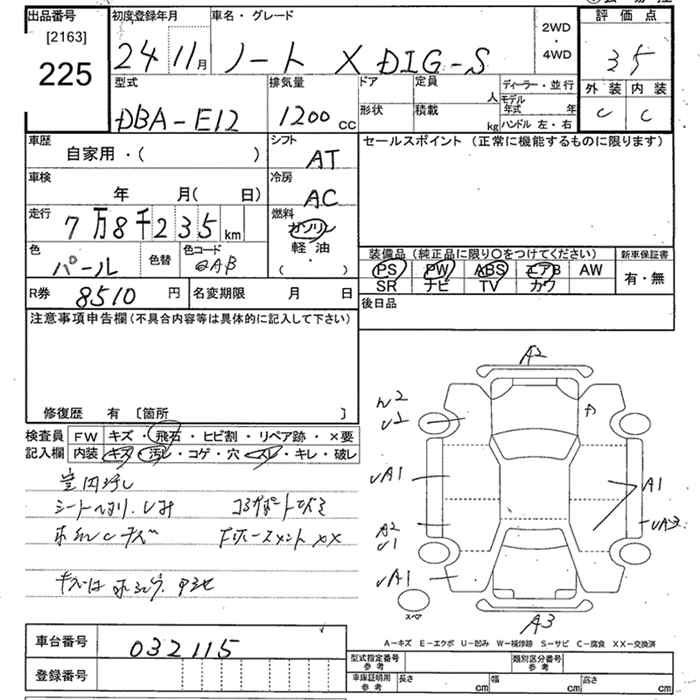 出品番号 初度登録年月 車名・グレード 2WD・4WD 評価点
[2163]
225 24 11月 ノート X DIG-S 35
型式 排気量 ドア 定員 人 ディーラー・並行 外装 内装
DBA-E12 1200cc 形状 積載 kg モデル年式 年 ハンドル 左・右 C C
車歴 シフト セールスポイント (正常に機能するものに限ります)
自家用・( ) AT
車検 冷房
年 月(日) AC
走行 燃料
7万8千235km ガソリン
軽・油
( )
色 色替 色コード
パール QAB
装備品 (純正品に限り○をつけてください) 新車保証書
PS PW ABS エアB AW 有・無
SR ナビ TV カワ
R券 8510円 名変期限 月 日 後日品
注意事項申告欄(不具合内容等は具体的に記入して下さい)
修復歴 有 〔箇所 〕
検査員記入欄 FW キズ・飛石・ヒビ割・リペア跡・×要
内装 キズ・汚レ・コゲ・穴・スレ・キレ・破レ
A2
W2
U2
A1
UA1
UA3
A2
U1
UA1
スペア
A3
車台番号 032115
登録番号
A-キズ E-エクボ U-凹み W-補修跡 S-サビ C-腐食 XX-交換済
型式指定番号 参考 類別区分番号 参考
車庫証明用 参考 長さ cm 幅 cm 高さ cm